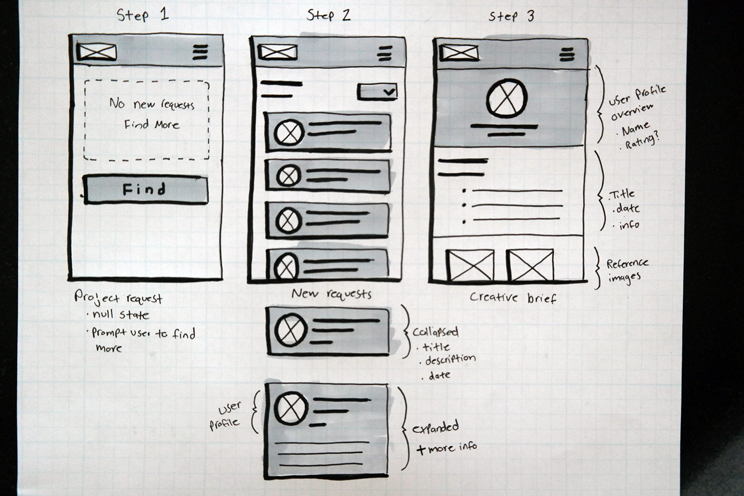 Step 1
No new requests
Find More
Find
Project request
· null state
· prompt user to find
more
Step 2
New requests
Collapsed
· title
· description
· date
User
Profile
expanded
+ more info
Step 3
User Profile
overview
· Name
· Rating?
· Title
· date
· info
Reference
images
Creative brief